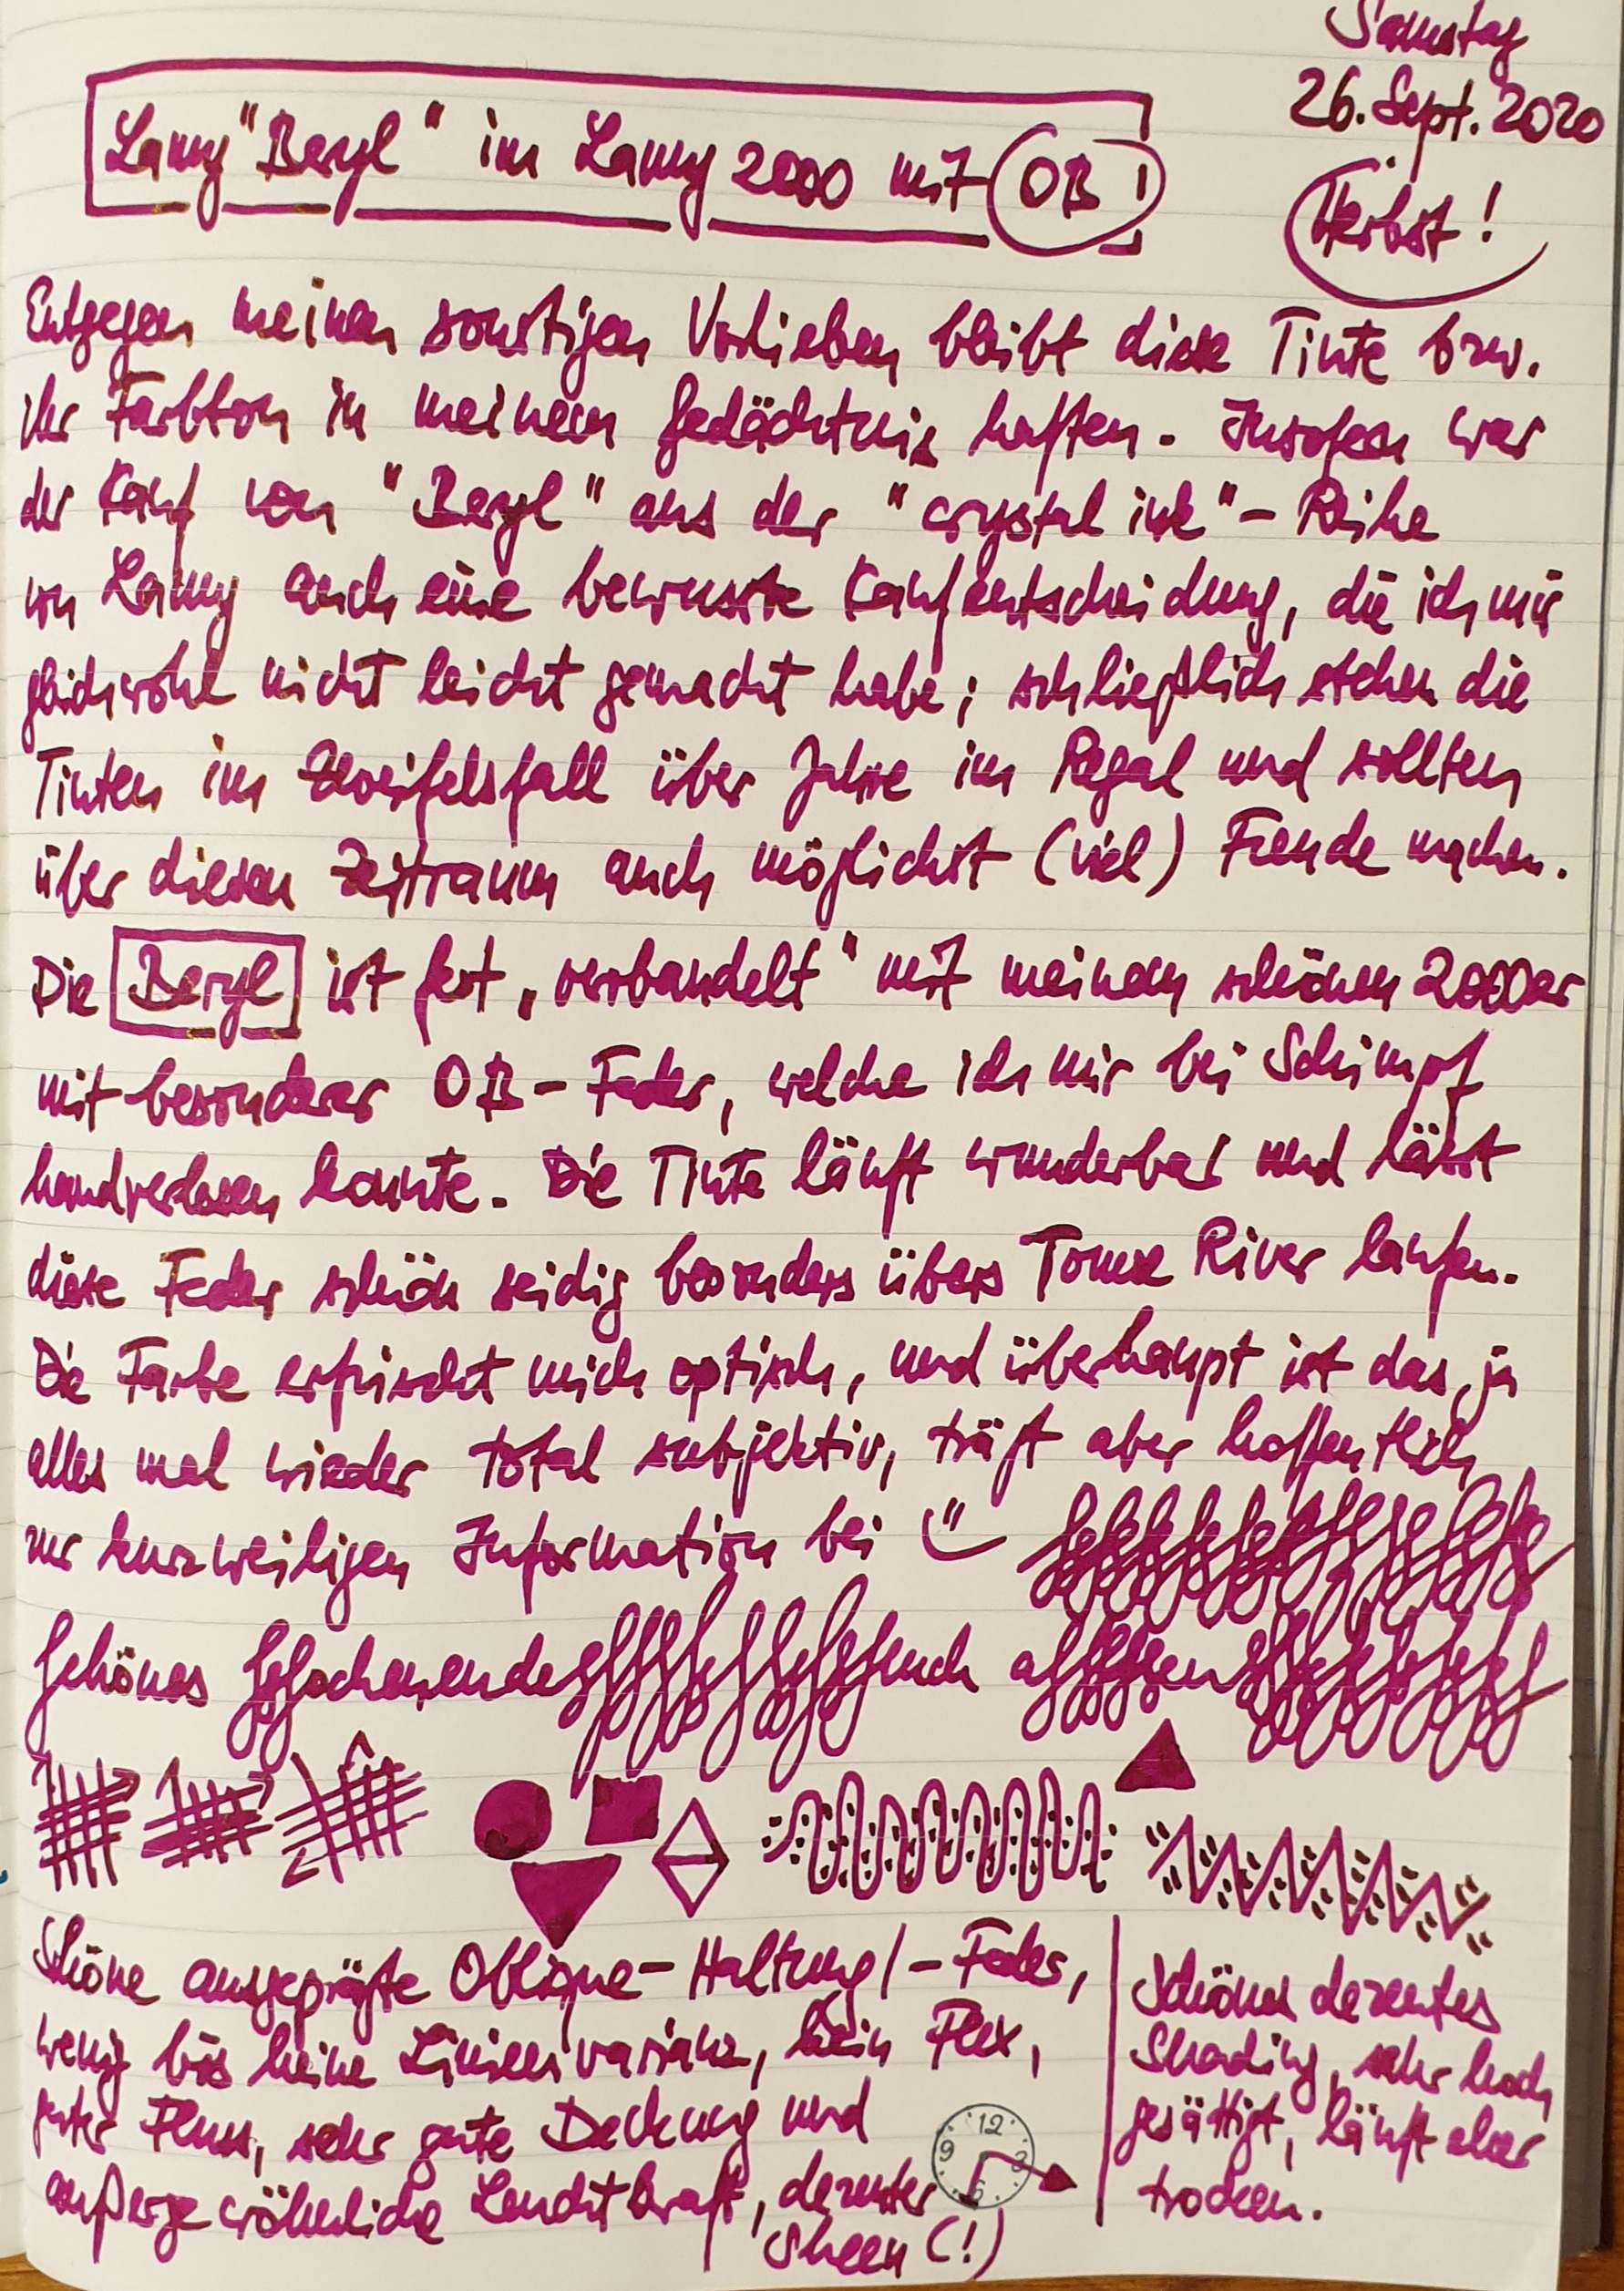 Samstag
26. Sept. 2020
Herbst!
Lamy "Beryl" im Lamy 2000 mit OB!
Entgegen meinen sonstigen Vorlieben bleibt diese Tinte bzw.
ihr Farbton in meinem Gedächtnis haften. Insofern war
der Kauf von "Beryl" aus der "crystal ink"-Reihe
von Lamy auch eine bewusste Kaufentscheidung, die ich mir
gleichwohl nicht leicht gemacht habe; schließlich stehen die
Tinten im Zweifelsfall über Jahre im Regal und sollten
über diesen Zeitraum auch möglichst (viel) Freude machen.
Die Beryl ist fest „verbandelt" mit meinem schönen 2000er
mit besonderer OB-Feder, welche ich mir bei Schimpf
handverlesen konnte. Die Tinte läuft wunderbar und lässt
diese Feder schön seidig besonders übers Tomoe River laufen.
Die Farbe erfrischt mich optisch, und überhaupt ist das ja
alles mal wieder total subjektiv, trägt aber hoffentlich
zur kurzweiligen Information bei
Schönes euch
Schöne ausgeprägte Oblique-Haltung/-Feder,
wenig bis keine Linienvarianz, kein Flex,
guter Fluss, sehr gute Deckung und
außergewöhnliche Leuchtkraft, dezenter
Sheen (!)
12
3
6
9
Schönes dezentes
Shading, sehr hoch
gesättigt, läuft aber
trocken.